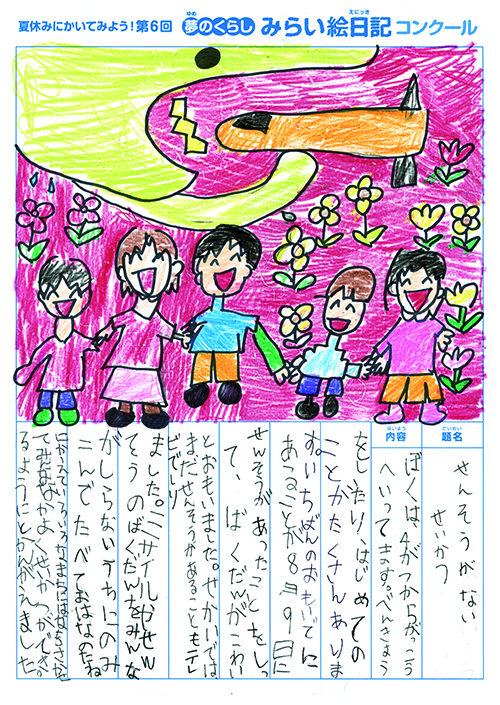 夏休みにかいてみよう！第6回 夢のくらし みらい絵日記 コンクール
ゆめ
えにっき
だいめい
題名
せんそうがない
せいかつ
ないよう
内容
ぼくは、4がつからがっこう
へいってます。べんきょう
をしたり、はじめての
ことがたくさんありま
す。いちばんのおもいでに
あることが8月9日に
せんそうがあったことをしっ
て、ばくだんがこわい
とおもいました。せかいでは
まだせんそうがあることもテレ
ビでしり
ました。ミサイルがせん
そうのばくだんをみんな
がしらないうちにのみ
こんでたべておはなのたね
にかえていろいろなまちにはなをさかせ
てみんななかよくせいかつができ
るようにとかんがえました